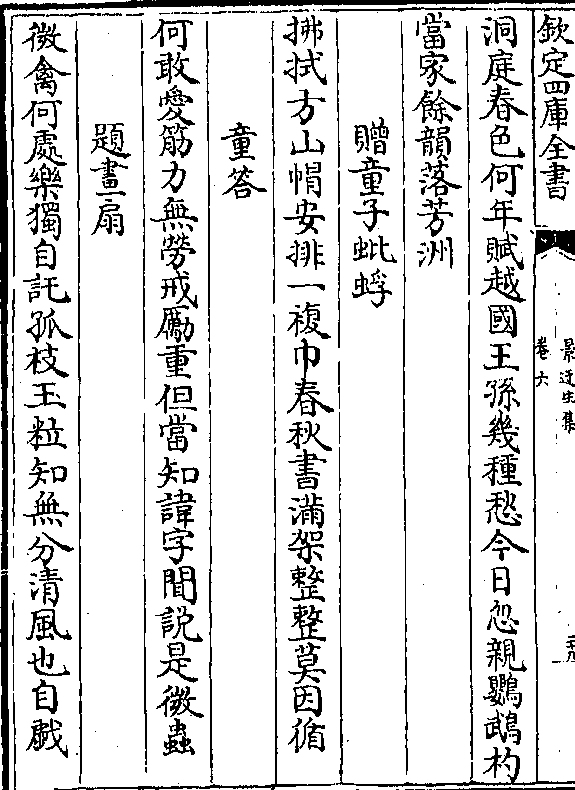 欽定四庫全書
景迂生集
卷六
洞庭春色何年賦越國王孫幾種愁今日忽親鸚鵡杓
當家餘韻落芳洲
贈童子蚍蜉
拂拭方山帽安排一複巾春秋書滿架整整莫因循
童答
何敢愛筋力無勞戒勵重但當知諱字聞説是微蟲
題畫扇
微禽何處樂獨自託孤枝玉粒知無分清風也自戲